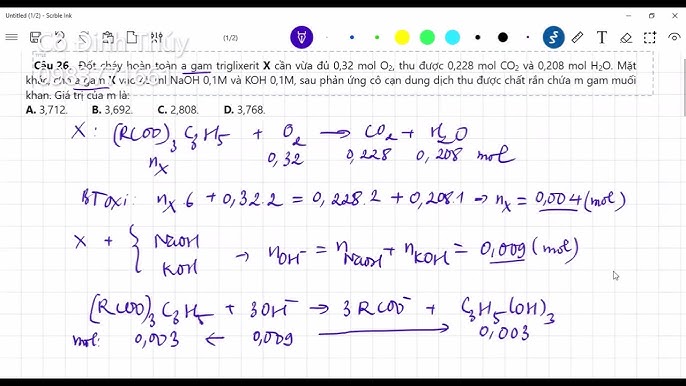 Untitled (1/2) - Scrble Ink
(1/2)
Cô Đinh Thúy
Câu 26. Đốt cháy hoàn toàn a gam triglixerit X cần vừa đủ 0,32 mol O₂, thu được 0,228 mol CO₂ và 0,208 mol H₂O. Mặt
khác, cho a gam X NaOH 0,1M và KOH 0,1M, sau phản ứng cô cạn dung dịch thu được chất rắn chứa m gam muối
khan. Giá trị của m là:
A. 3,712. B. 3,692. C. 2,808. D. 3,768.
X : (RCOO)₃C₃H₅ + O₂ → CO₂ + H₂O
nX 0,32 0,228 0,208 mol
BT oxi: nX.6 + 0,32.2 = 0,228.2 + 0,208.1 → nX = 0,004 (mol)
X + { NaOH → nOH⁻ = nNaOH + nKOH = 0,009 (mol)
KOH
(RCOO)₃C₃H₅ + 3OH⁻ → 3RCOO⁻ + C₃H₅(OH)₃
mol: 0,003 ← 0,009 → 0,003